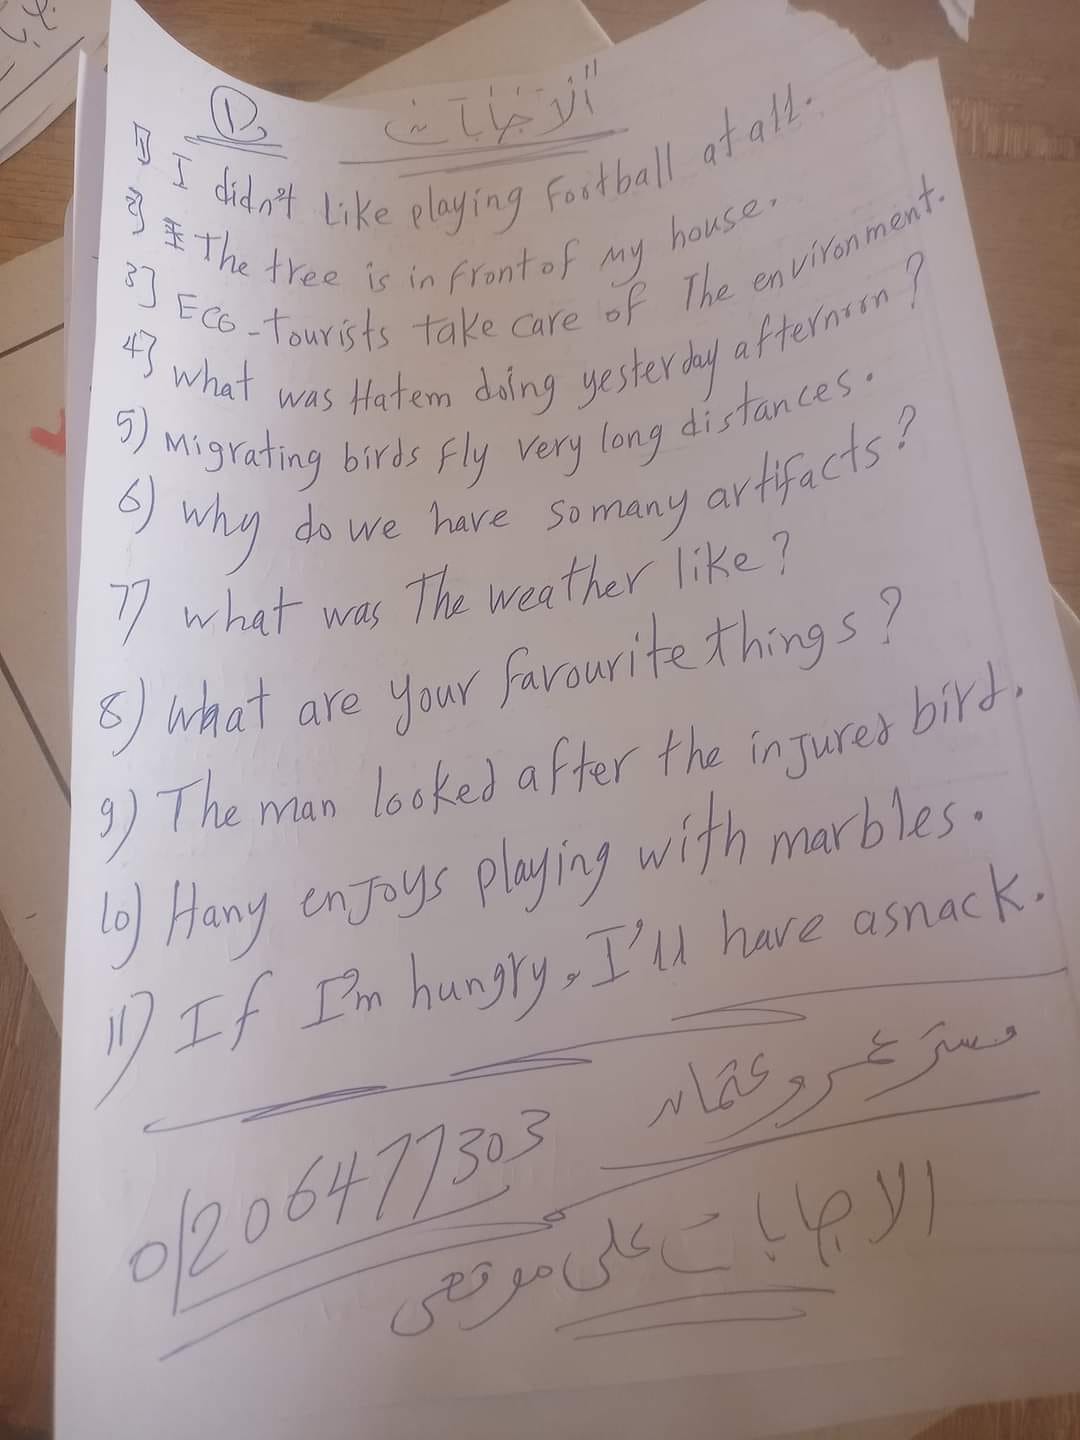 1 "الاجابات"
1) I didn't Like playing Football at all.
2) The tree is in front of my house.
3) Eco-tourists take care of The environment.
4) what was Hatem doing yesterday afternoon?
5) Migrating birds fly very long distances.
6) why do we have so many artifacts?
7) what was The weather like?
8) what are your favourite things?
9) The man looked after the injured bird.
10) Hany enjoys playing with marbles.
11) If I'm hungry, I'll have a snack.
مستر عمرو عتمان
01206477303
الاجابات على موقعى